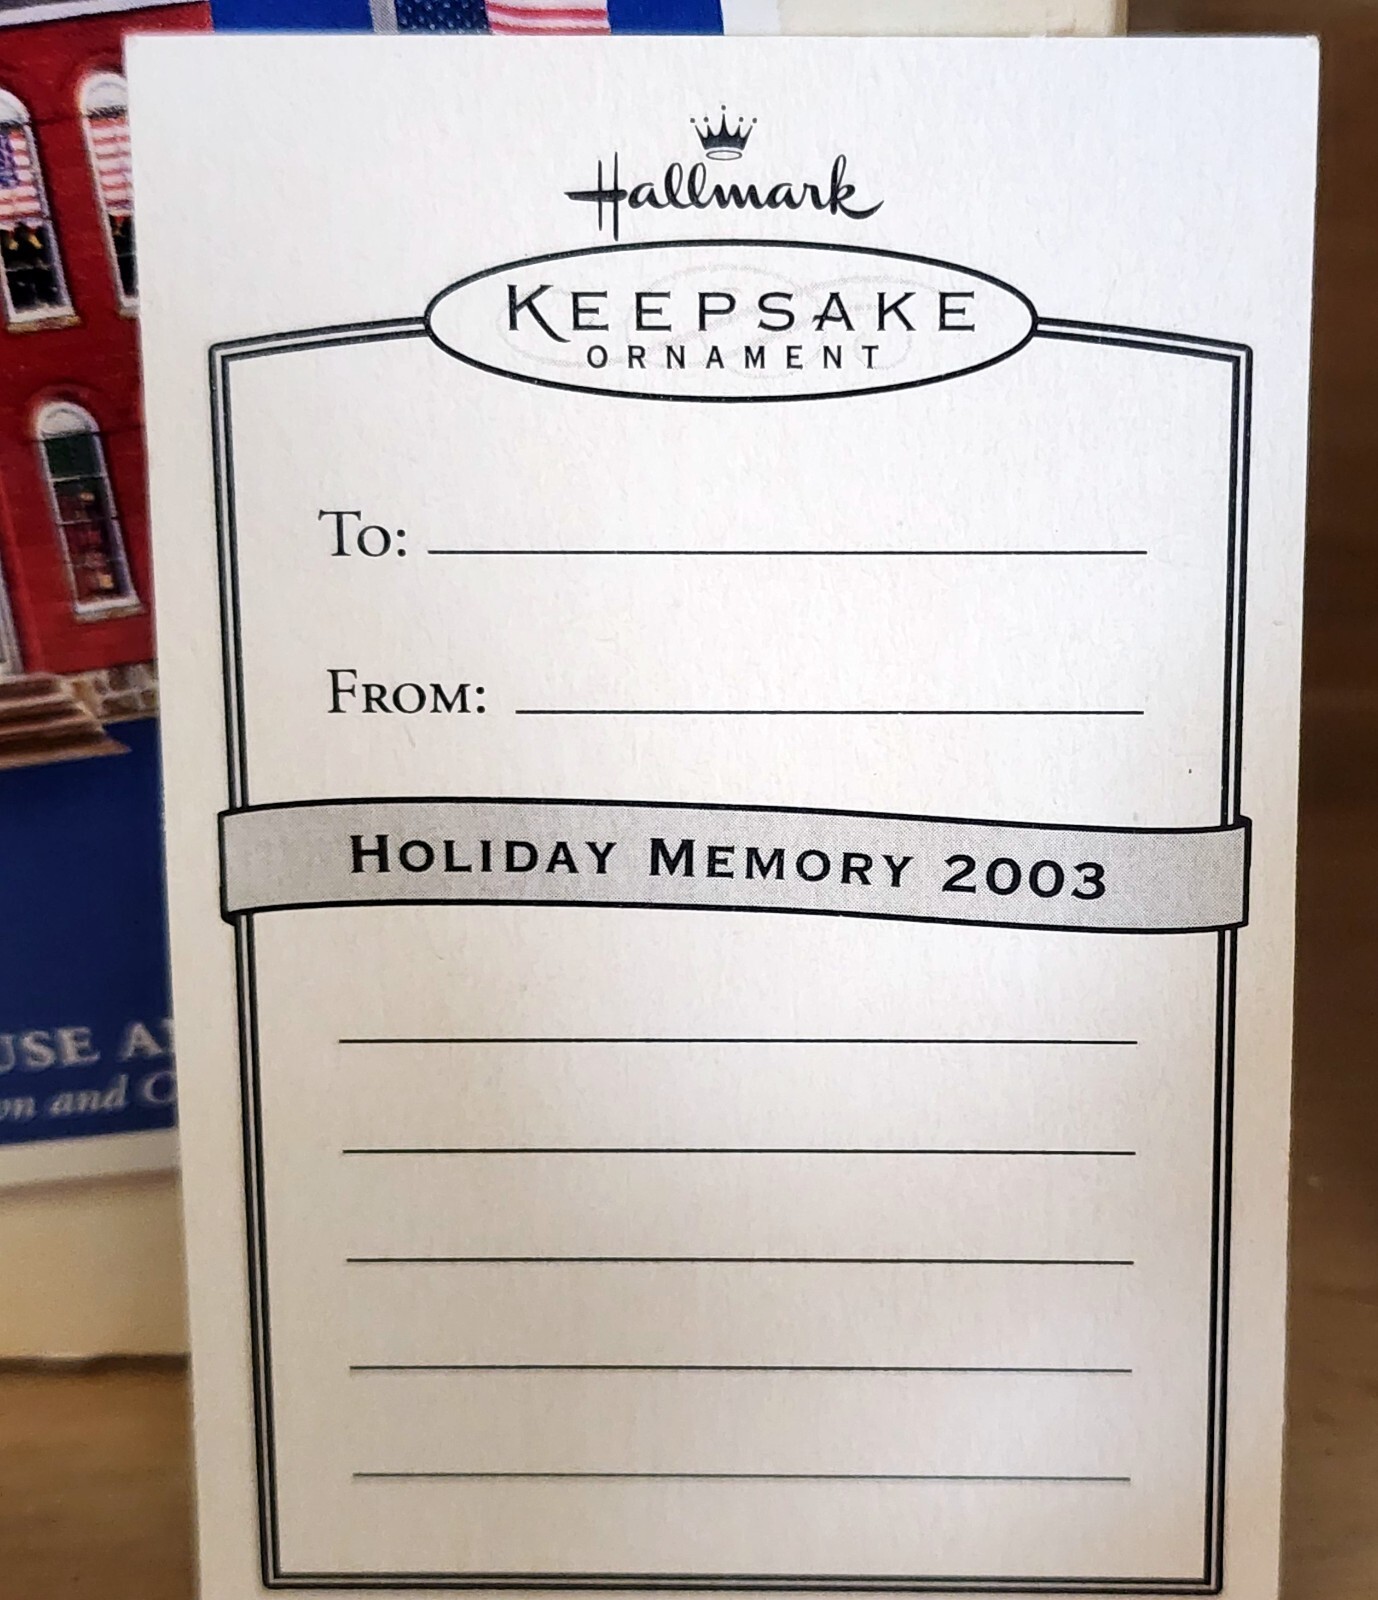 Hallmark
KEEPSAKE
ORNAMENT
TO:
FROM:
HOLIDAY MEMORY 2003
and